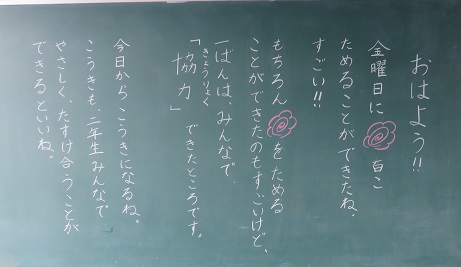 おはよう!!
金曜日に 百こ
ためることができたね。
すごい!!
もちろん をためる
ことができたのもすごいけど、
一ばんは、みんなで
「協力」できたところです。
きょうりょく
今日からこうきになるね。
こうきも、二年生みんなで
やさしく、たすけ合うことが
できるといいね。